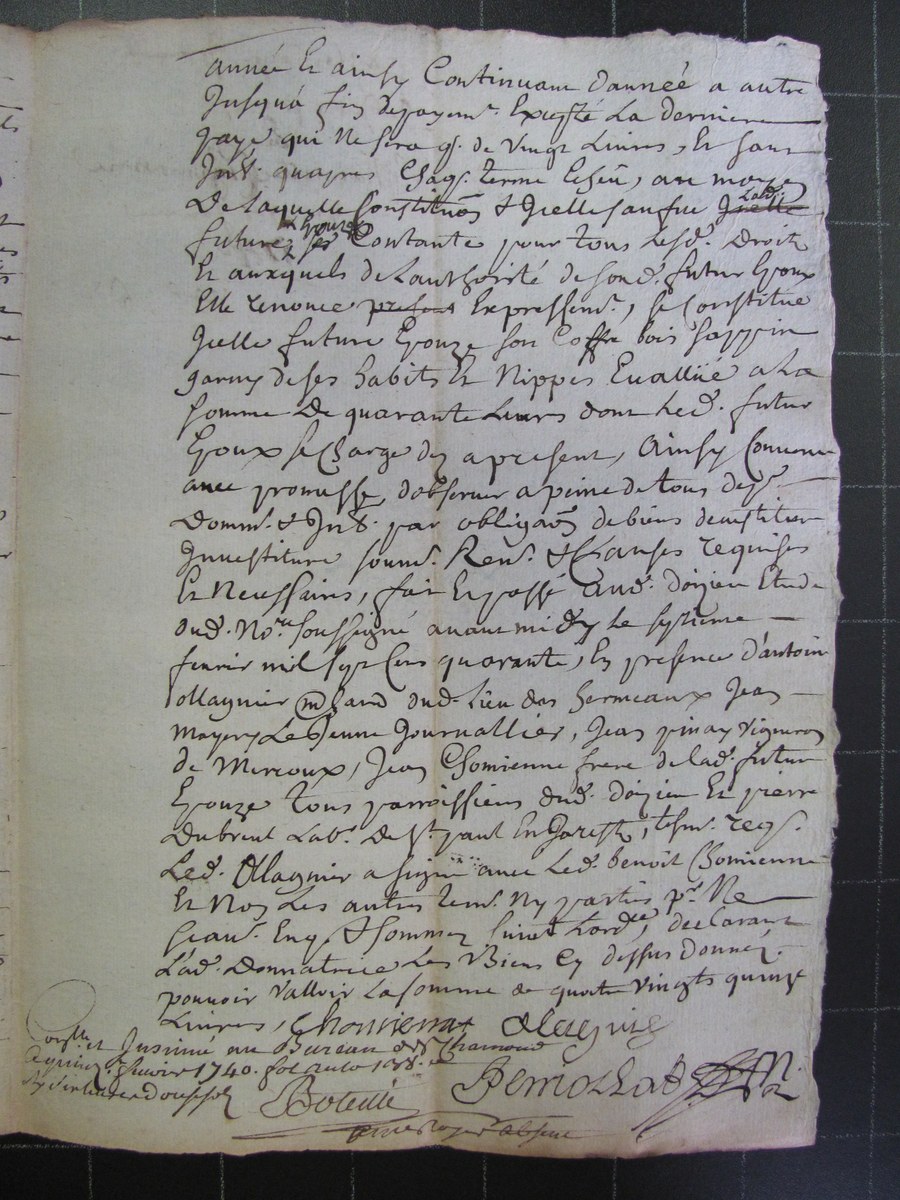 année Et ainsy Continuant dannéé a autre
Jusqua fin de payem.t Excepté La derniere
paye qui Ne sera q. de vingt Livres, Et sans
Jnt. quapres Chaq. terme Echeu, au moyen
De laquelle Constituõn & Jcelle Lad.
future Epouze Contante pour tous Lesd. Droits
Et auxquels de Lauthorité de son d. futur Epoux
Elle renonce Expressem.t, se Constitue
Jcelle future Epouze son Coffre bois sappin
garny de ses habits Et Nippes Evallüé a La
somme De quarante Livres dont Led. futur
Epoux se Charge dez a present, Ainsy Convenu
avec promesse, dobserver a peine de tous dep.
Domm. & Jnt. par obligaõn de biens
Jnvestiture soum. Ren. & Clauses requises
Et Necessaires, fait Et passé aud. doizieu Etude
dud. No.re soussigné avant midy le septieme
fevrier mil sept Cens quarante, En presence d'antoine
ollagnier m.chand dud. Lieu des hermeaux Jean
Le Jeune Journallier, Jean pinay vigneron
de Mercoux, Jean Chomienne frere de lad. future
Epouze tous parroissiens dud. doizieu Et pierre
Dubreul Lab.r De St. paul En Jarest, tesm. req.
Led. Ollagnier a signé avec Led. benoit Chomienne
Et Non Les autres tem. Ny parties p.r Ne
Scav. Enq. & sommez suivt Lord.ce, declarant
Lad. Donnatrice Les Biens Cy dessus Donnez
pouvoir valloir La somme de quatre vingts quinze
Livres, Chomienne Olagnie
Con.lle et Jnsinué au Bureau de St. Chamond
fevrier 1740. fol.